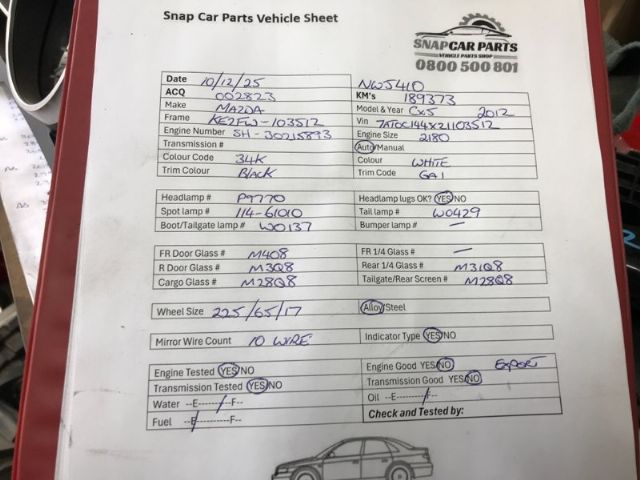 Snap Car Parts Vehicle Sheet
SNAPCAR PARTS
VEHICLE PARTS SHOP
0800 500 801
Date 10/12/25 NWJ410
ACQ 002823 KM's 189373
Make MAZDA Model & Year CX5 2012
Frame KE2FW-103512 Vin 7AT0C144X21103512
Engine Number SH-30215893 Engine Size 2180
Transmission # Auto/Manual
Colour Code 34K Colour WHITE
Trim Colour BLACK Trim Code GA1
Headlamp # P9770 Headlamp lugs OK? YES/NO
Spot lamp # 114-61010 Tail lamp # W0429
Boot/Tailgate lamp # W0137 Bumper lamp # —
FR Door Glass # M408 FR 1/4 Glass # —
R Door Glass # M3Q8 Rear 1/4 Glass # M31Q8
Cargo Glass # M28Q8 Tailgate/Rear Screen # M28Q8
Wheel Size 225/65/17 Alloy/Steel
Mirror Wire Count 10 WIRE Indicator Type YES/NO
Engine Tested YES/NO Engine Good YES/NO EXPORT
Transmission Tested YES/NO Transmission Good YES/NO
Water --E--------/--F-- Oil --E---------/F--
Fuel --E---------F-- Check and Tested by: